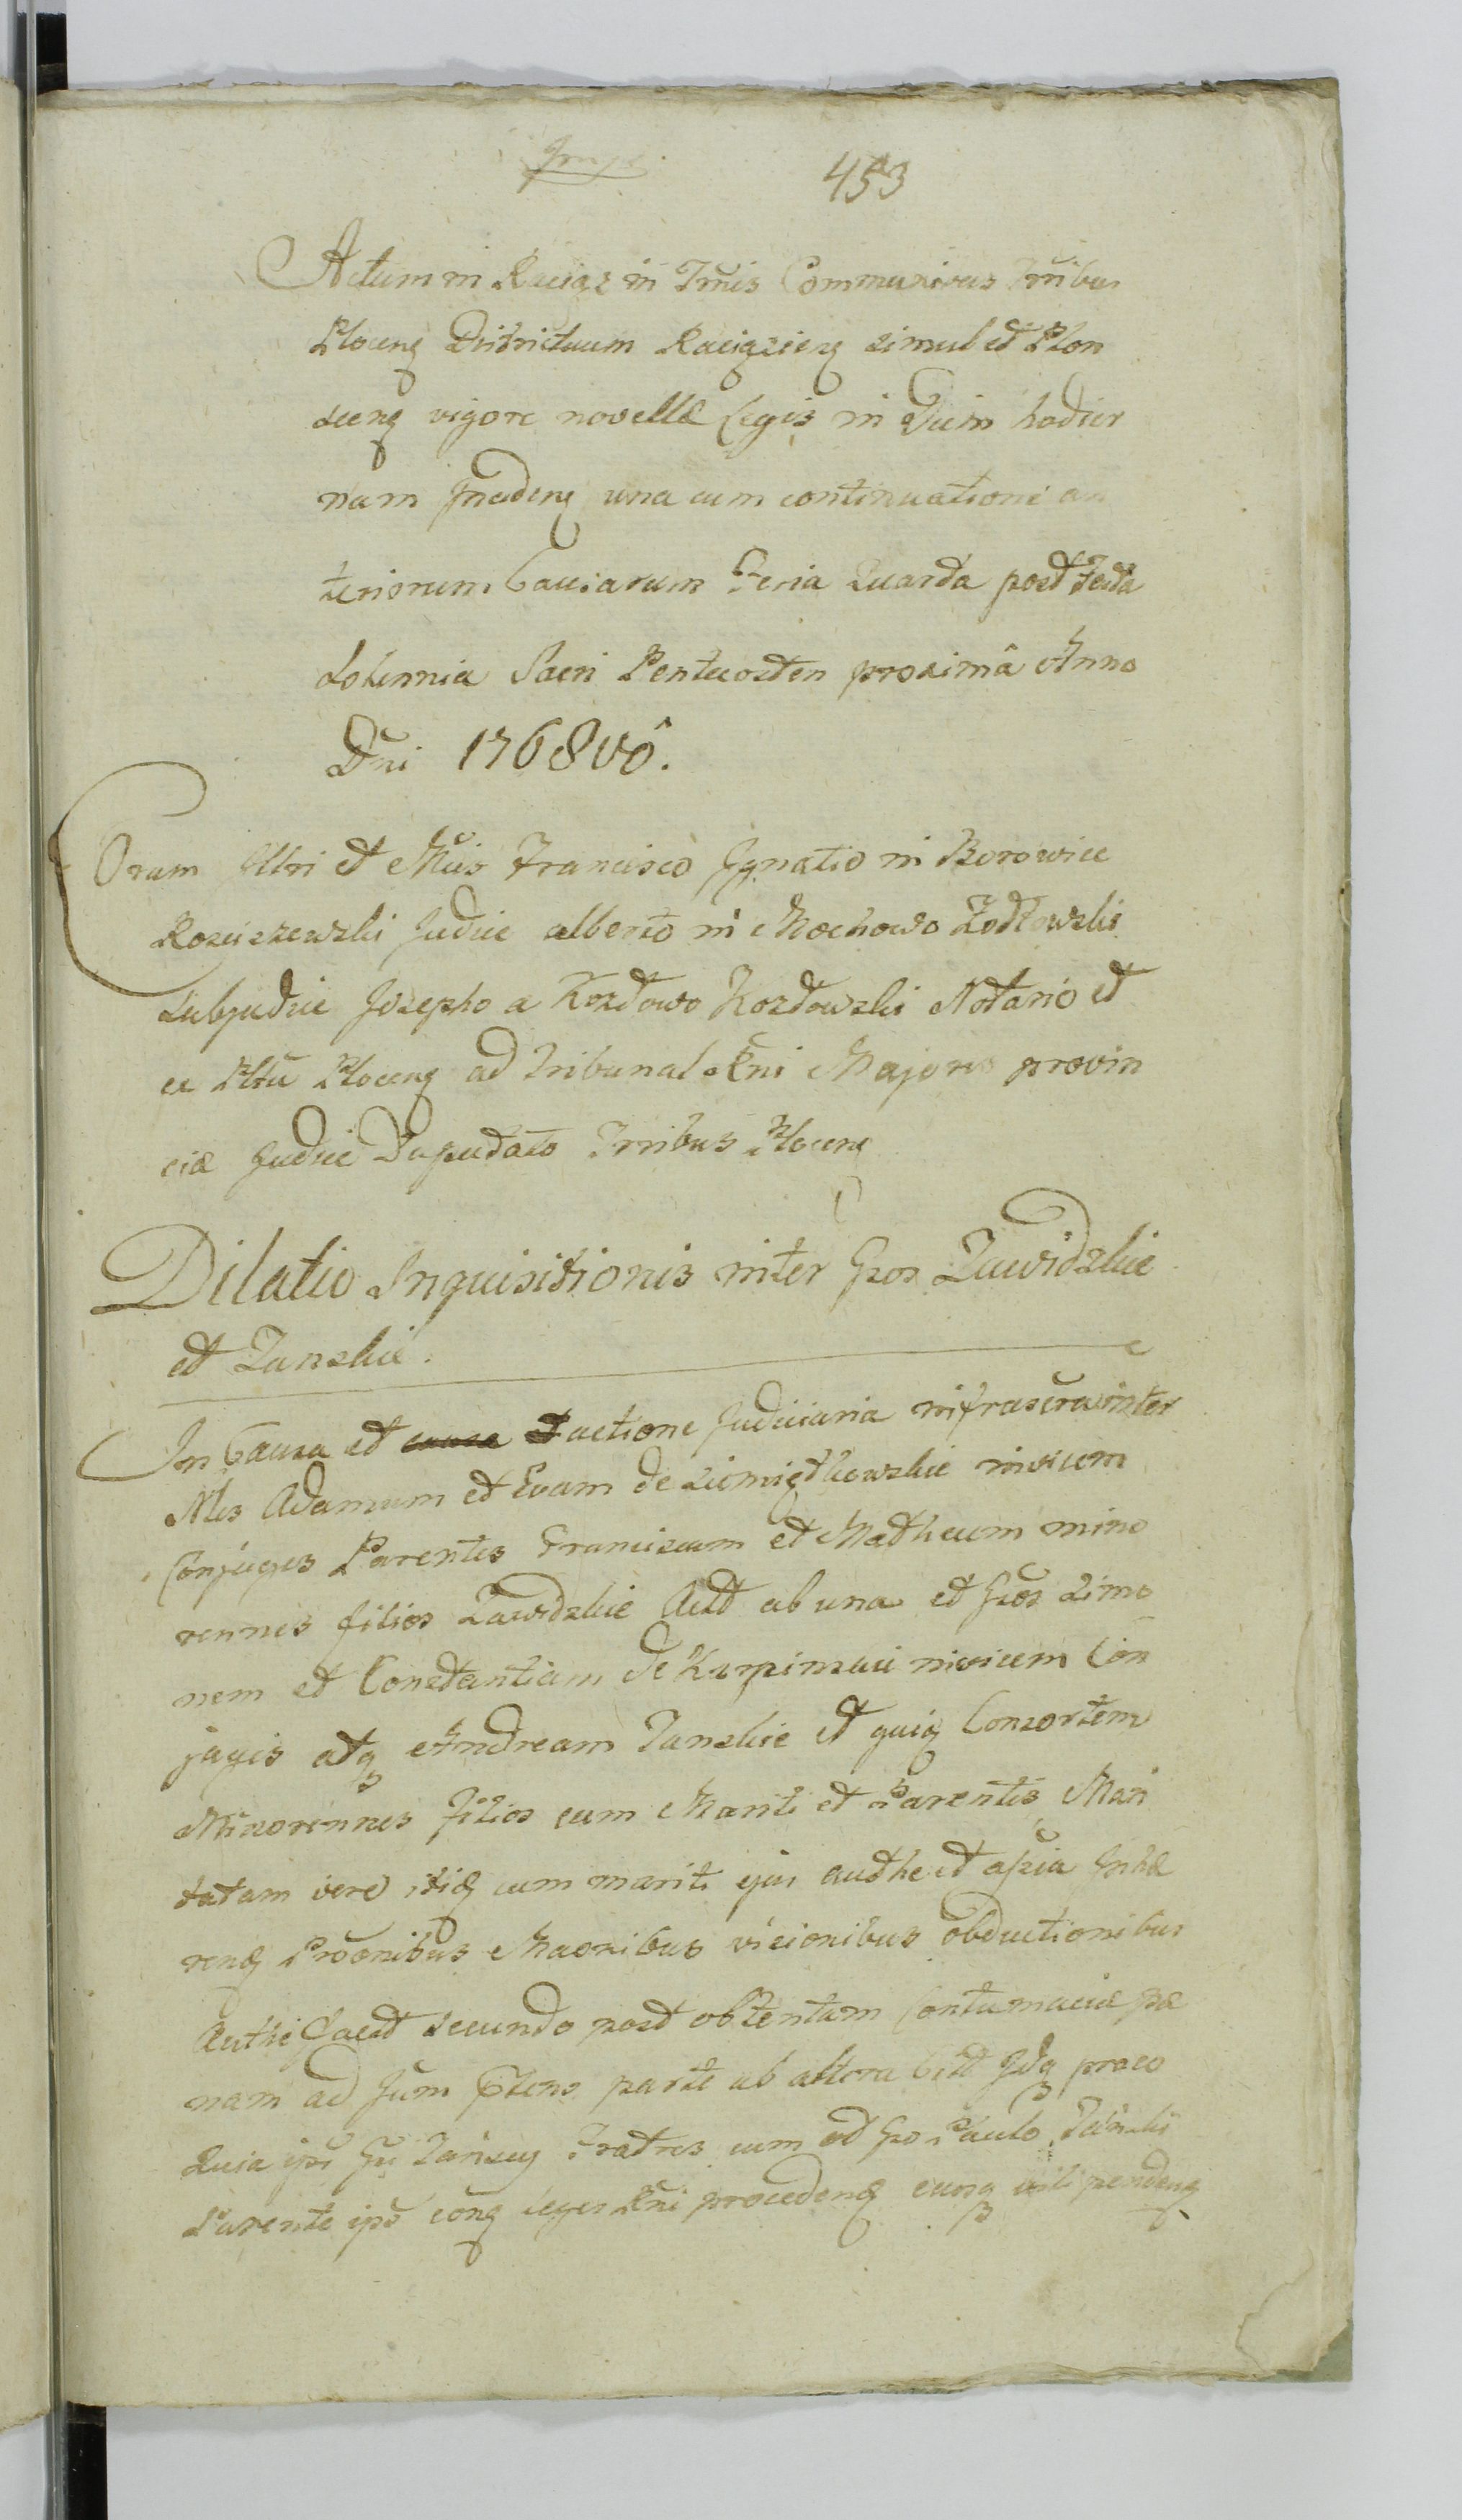 453
Actum in Raciąż in Tmis Communibus Trribus
Plocens Districtuum Raciąziens simul et Plon
scens vigore novellæ Legis in Diem hodier
nam Inciden una cum continuatione an
teriorum Causarum Feria Quarta post Festa
Solennia Sacri Pentecosten proximâ Anno
Dni 1768vô.
Coram Illri et Mcis Francisco Ignatio in Borowice
Rosciszewski Judice Alberto in Mochowo Żodłowski
Subjudice Josepho a Kozdowo Kozdowski Notario et
ex Pltu Plocens ad Tribunal Rni Majoris provin
ciæ Judice Deputato Trribus Plocens
Dilatio Inquisitionis inter Gsos Zawidzkie
et Tanskie.
In Causa et causa et actione Judiciaria infrascra inter
Nles Adamum et Evam de Ziemiędkowskie invicem
Conjuges Parentes Franciscum et Matheum mino
rennes filios Zawidzkie Act ab una et Gsos Simo
nem et Constantiam de Karpinscii invicem Con
juges atq Andream Tanskie et quiq Consortem
Minorennes filios cum Mariti et Parentis Mari
tatam vero itiq cum mariti ejus authe et assia Inhæ
rend Proonibus Maonibus visionibus obductionibus
Authe Casst secundo post obtentam Contumaciæ pæ
nam ad Jum Ptens parte ab altera Citt Jdq praeo
Quia ipsi Gsi Tanscy Fratres cum ad Gso Paulo Tanski
Parente ipso cong leges Rni procedend eunq vili pendend